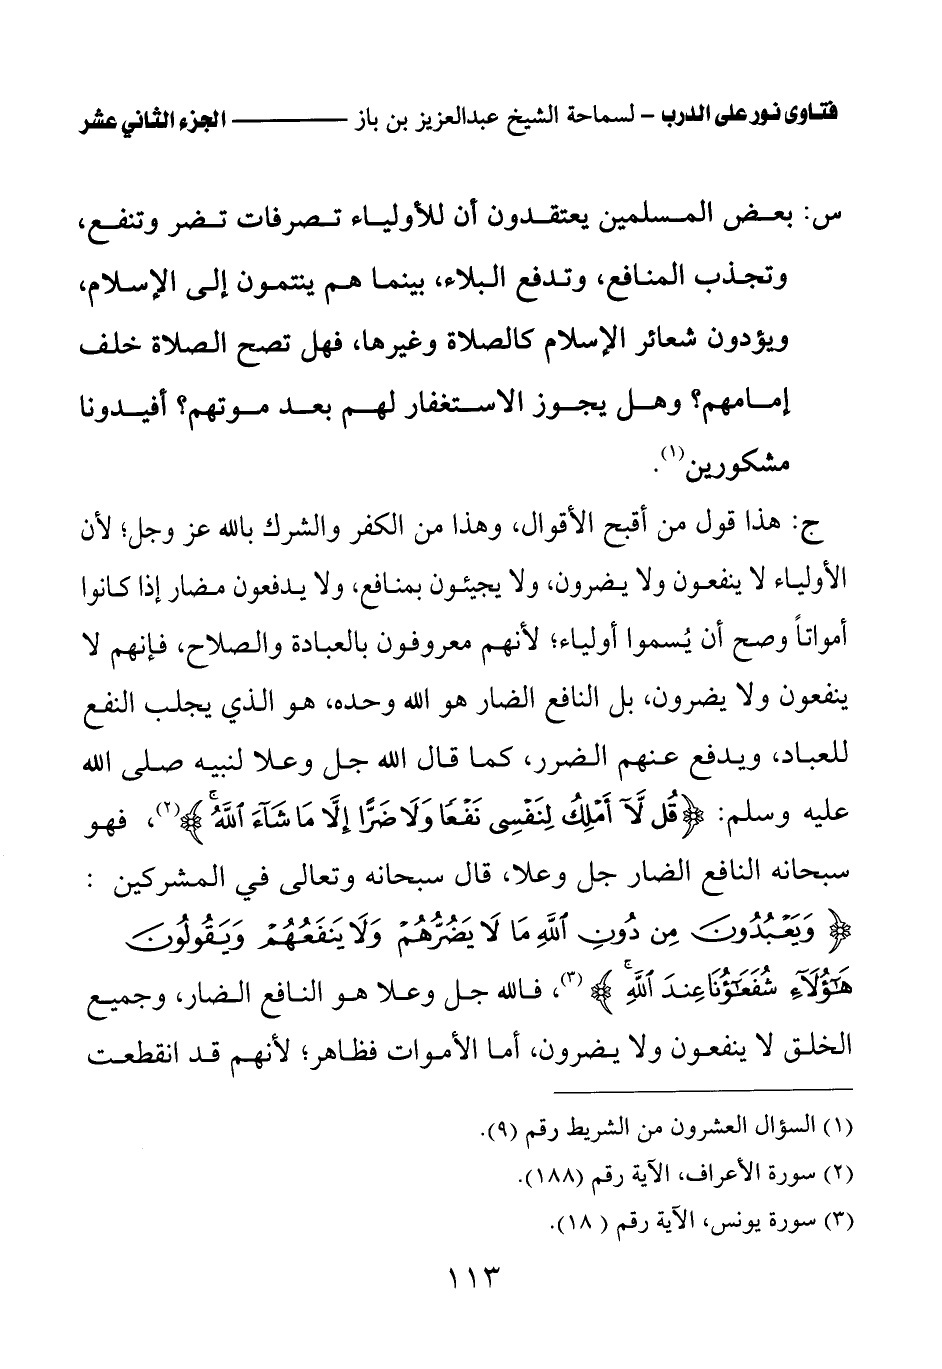 فتاوى نور على الدرب - لسماحة الشيخ عبدالعزيز بن باز ـــــــــ الجزء الثاني عشر
س: بعض المسلمين يعتقدون أن للأولياء تصرفات تضر وتنفع،
وتجذب المنافع، وتدفع البلاء، بينما هم ينتمون إلى الإسلام،
ويؤدون شعائر الإسلام كالصلاة وغيرها، فهل تصح الصلاة خلف
إمامهم؟ وهل يجوز الاستغفار لهم بعد موتهم؟ أفيدونا
مشكورين(١).
ج: هذا قول من أقبح الأقوال، وهذا من الكفر والشرك بالله عز وجل؛ لأن
الأولياء لا ينفعون ولا يضرون، ولا يجيئون بمنافع، ولا يدفعون مضار إذا كانوا
أمواتاً وصح أن يُسموا أولياء؛ لأنهم معروفون بالعبادة والصلاح، فإنهم لا
ينفعون ولا يضرون، بل النافع الضار هو الله وحده، هو الذي يجلب النفع
للعباد، ويدفع عنهم الضرر، كما قال الله جل وعلا لنبيه صلى الله
عليه وسلم: ﴿قُل لَّآ أَمْلِكُ لِنَفْسِى نَفْعًا وَلَا ضَرًّا إِلَّا مَا شَآءَ ٱللَّهُ ۚ﴾(٢)، فهو
سبحانه النافع الضار جل وعلا، قال سبحانه وتعالى في المشركين :
﴿ وَيَعْبُدُونَ مِن دُونِ ٱللَّهِ مَا لَا يَضُرُّهُمْ وَلَا يَنفَعُهُمْ وَيَقُولُونَ
هَٰٓؤُلَآءِ شُفَعَٰٓؤُنَا عِندَ ٱللَّهِ ۚ ﴾(٣)، فالله جل وعلا هو النافع الضار، وجميع
الخلق لا ينفعون ولا يضرون، أما الأموات فظاهر؛ لأنهم قد انقطعت
(١) السؤال العشرون من الشريط رقم (٩).
(٢) سورة الأعراف، الآية رقم (١٨٨).
(٣) سورة يونس، الآية رقم ( ١٨).
١١٣